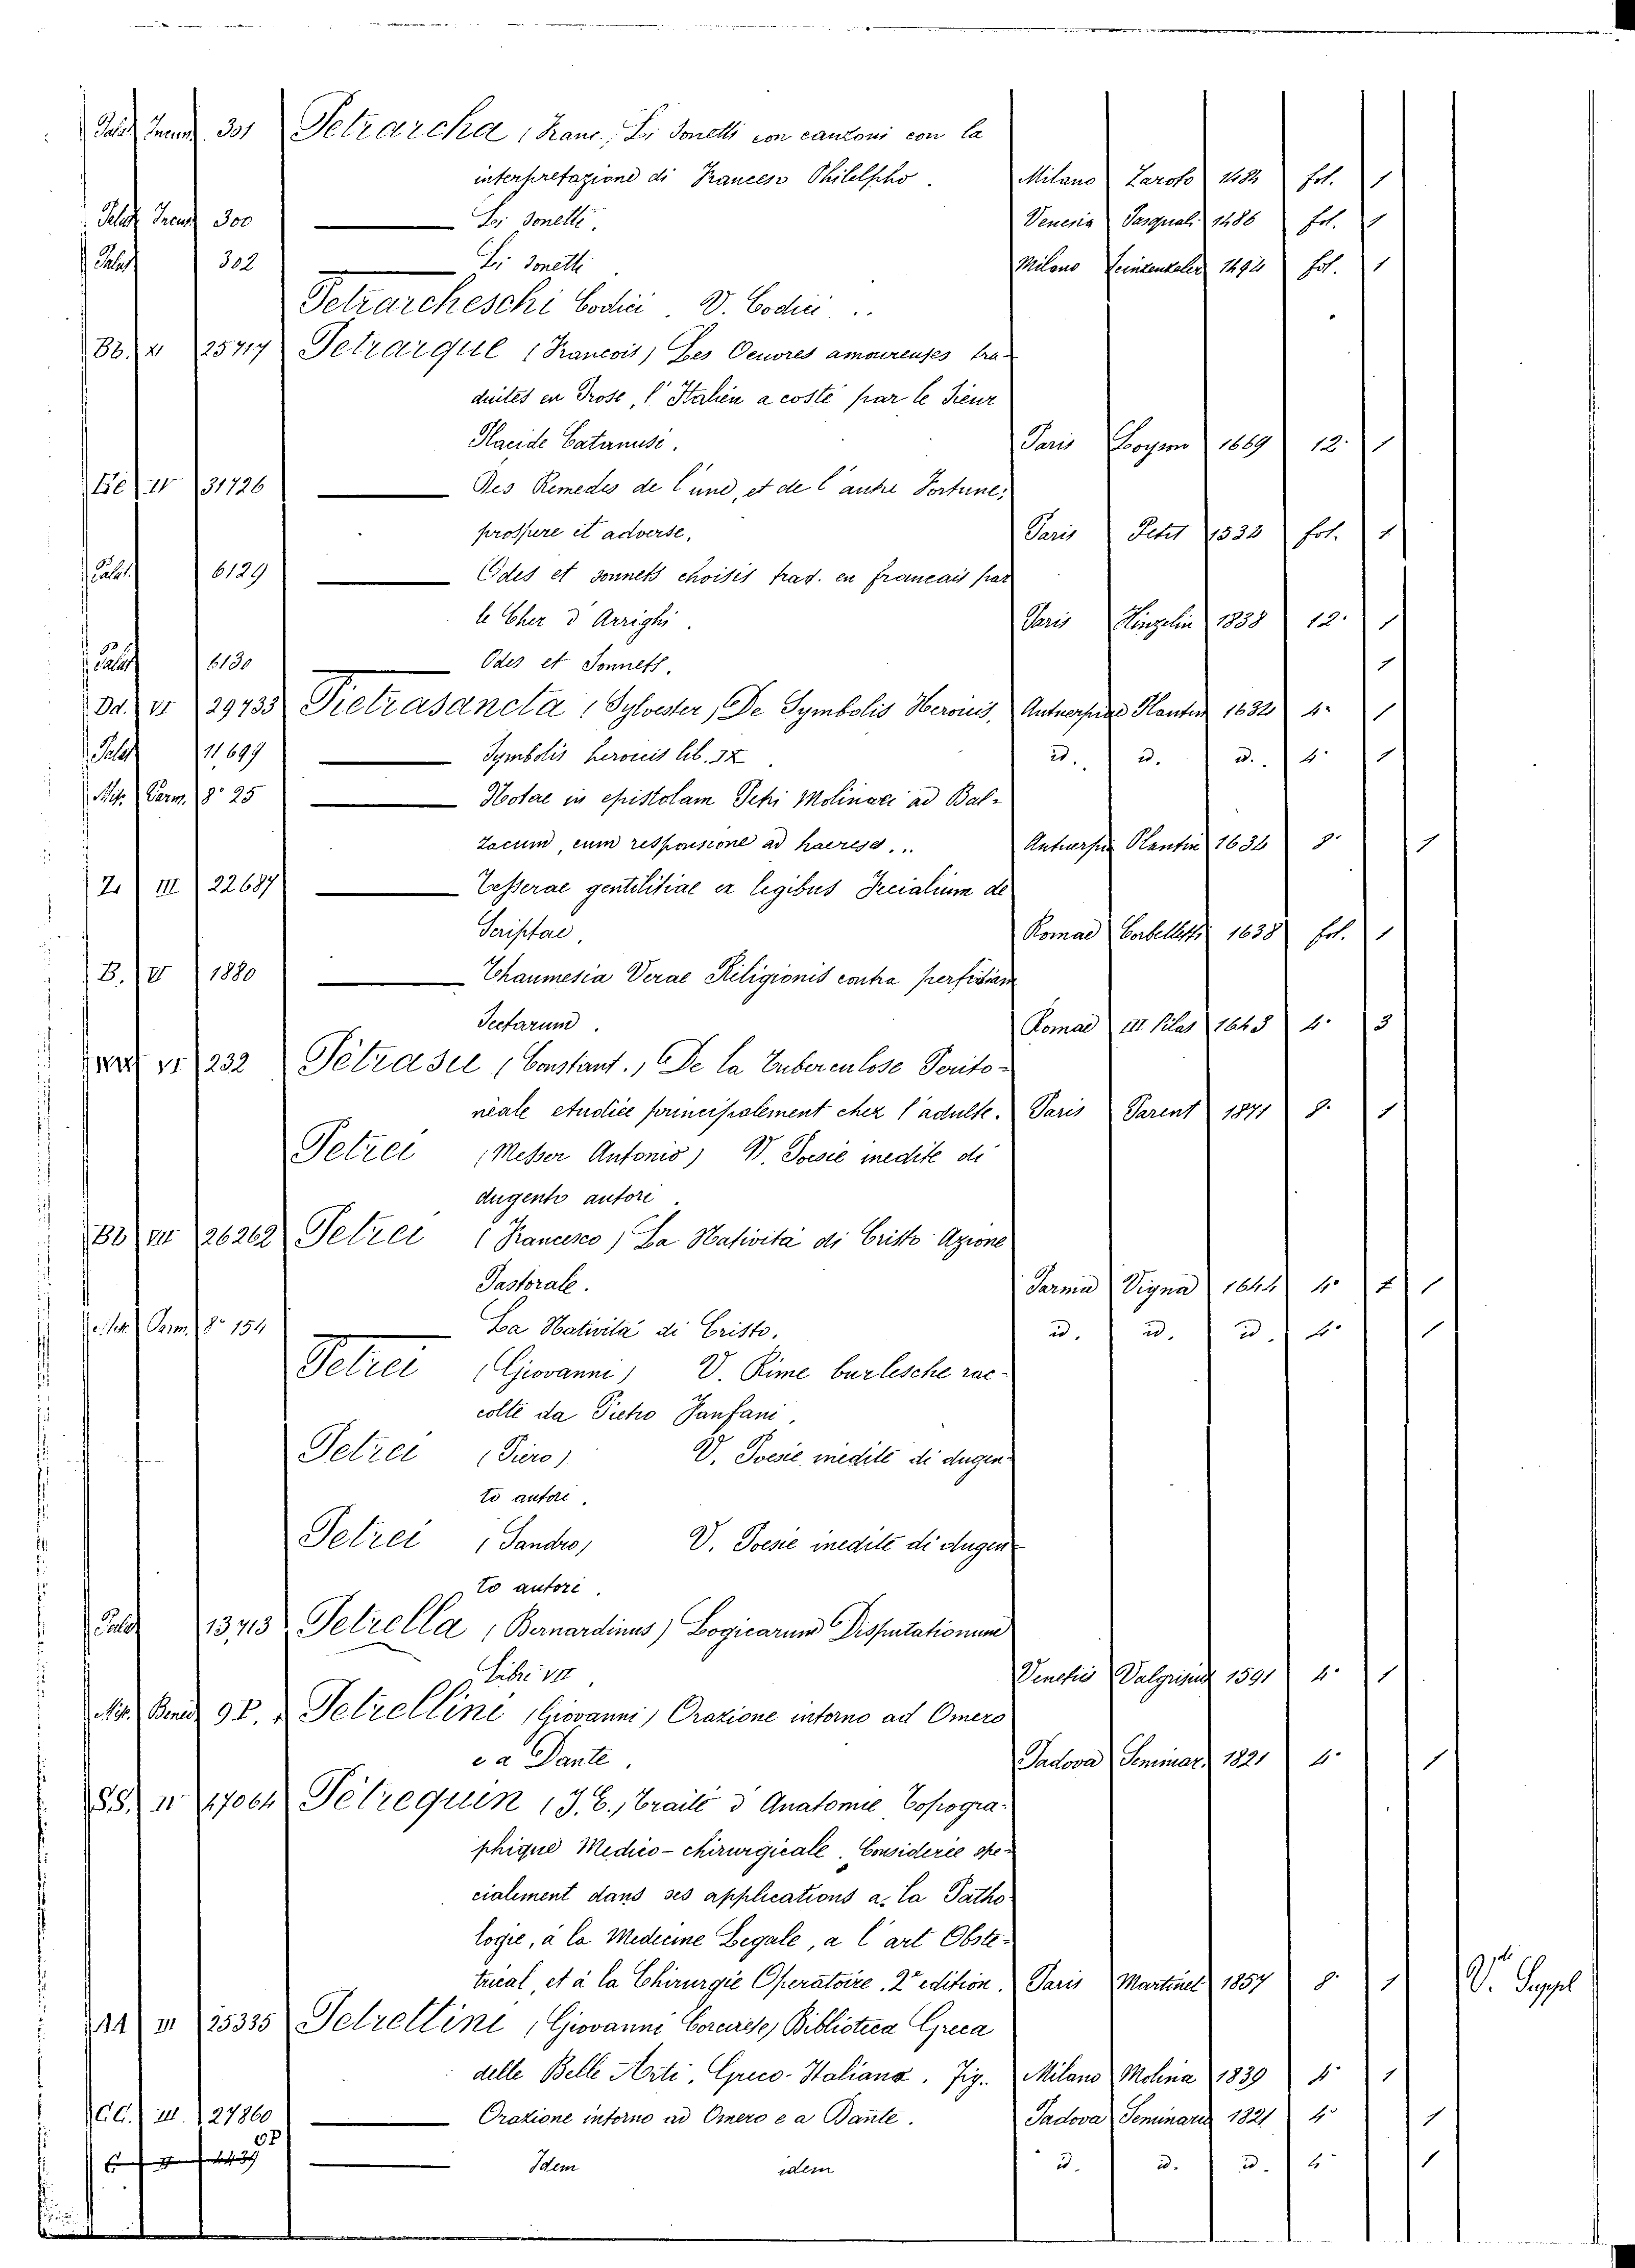 301 Petrarcha (Franc., Li Sonetti con canzoni con la
interpretazione di Francesco Philelpho. Milano Zaroto 1484 fol. 1
300 — Li Sonetti. Venesia Pasquali 1486 fol. 1
Palat 302 — Li Sonetti Milano 1494 fol. 1
Petrarcheschi Codici. V. Codici..
Bb. XI 25717 Petrarque (Francois) Les Oeuvres amoureuses tra-
duites en Prose, l'Italien a costé par le Sieur
Placide Catanusi. Paris Loyson 1669 12. 1
IV 31726 — Des Remedes de l'une, et de l'autre Fortune,
prospere et adverse. Paris Petit 1532 fol. 1
Palat. 6129 — Odes et sonnets choisis trad. en francais par
le Cher d'Arrighi. Paris Hingelin 1838 12. 1
Palat 6130 — Odes et Sonnets. 1
Dd. VI 29733 Pietrasancta (Sylvester, De Symbolis Heroicis. Antuerpiae Plantin 1632 4. 1
Palat 11.697 — Symbolis heroicis lib. IX. id. id. id. 4. 1
Mis. Parm. 8° 25 — Notae in epistolam Petri Molinaei ad Bal-
zacum, cum responsione ad haerese... Antuerpia Plantin 1634 8. 1
Z. III 22687 — Tesserae gentilitiae ex legibus Fecialium de
Scriptae. Romae Corbelletti 1638 fol. 1
B. VI 1880 — Thaumesia Verae Religionis contra perfidiam
Sectarum. Romae 1643 4. 3
VI 232 Petrasu (Constant.) De la Tuberculose Perito-
néale etudiée principalement chez l'adulte. Paris Parent 1871 8. 1
Petrei (Messer Antonio) V. Poesie inedite di
dugento autori.
Bb VII 26262 Petrei (Francesco) La Natività di Cristo Azione
Pastorale. Parma Vigna 1644 4° 1
Parm. 8° 154 La Natività di Cristo. id. id. id. 4° 1
Petrei (Giovanni) V. Rime burlesche rac-
colte da Pietro Fanfani.
Petrei (Piero) V. Poesie inedite di dugen-
to autori.
Petrei (Sandro) V. Poesie inedite di dugen-
to autori.
Palat 13,713 Petrella (Bernardinus) Logicarum Disputationum
Libri VII Venetiis Valgrisius 1591 4. 1
Mis. Bened. 9 Petrellini (Giovanni) Orazione intorno ad Omero
e a Dante. Padova Seminar. 1821 4. 1
SS. II 47064 Petrequin (J. E., Traité d'Anatomie Topogra-
phique Medico-chirurgicale. Considerée spe-
cialement dans ses applications a la Patho-
logie, à la Medecine Legale, a l'art Obste-
trical, et à la Chirurgie Operatoire. 2e edition. Paris Martinet 1857 8. 1 V. Suppl
AA III 25335 Petrettini (Giovanni Corcirese) Biblioteca Greca
delle Belle Arti. Greco-Italiana. Fig. Milano Molina 1839 4. 1
CC. III. 27860 — Orazione intorno ad Omero e a Dante. Padova Seminario 1821 4° 1
— Idem idem id. id. id. 4° 1